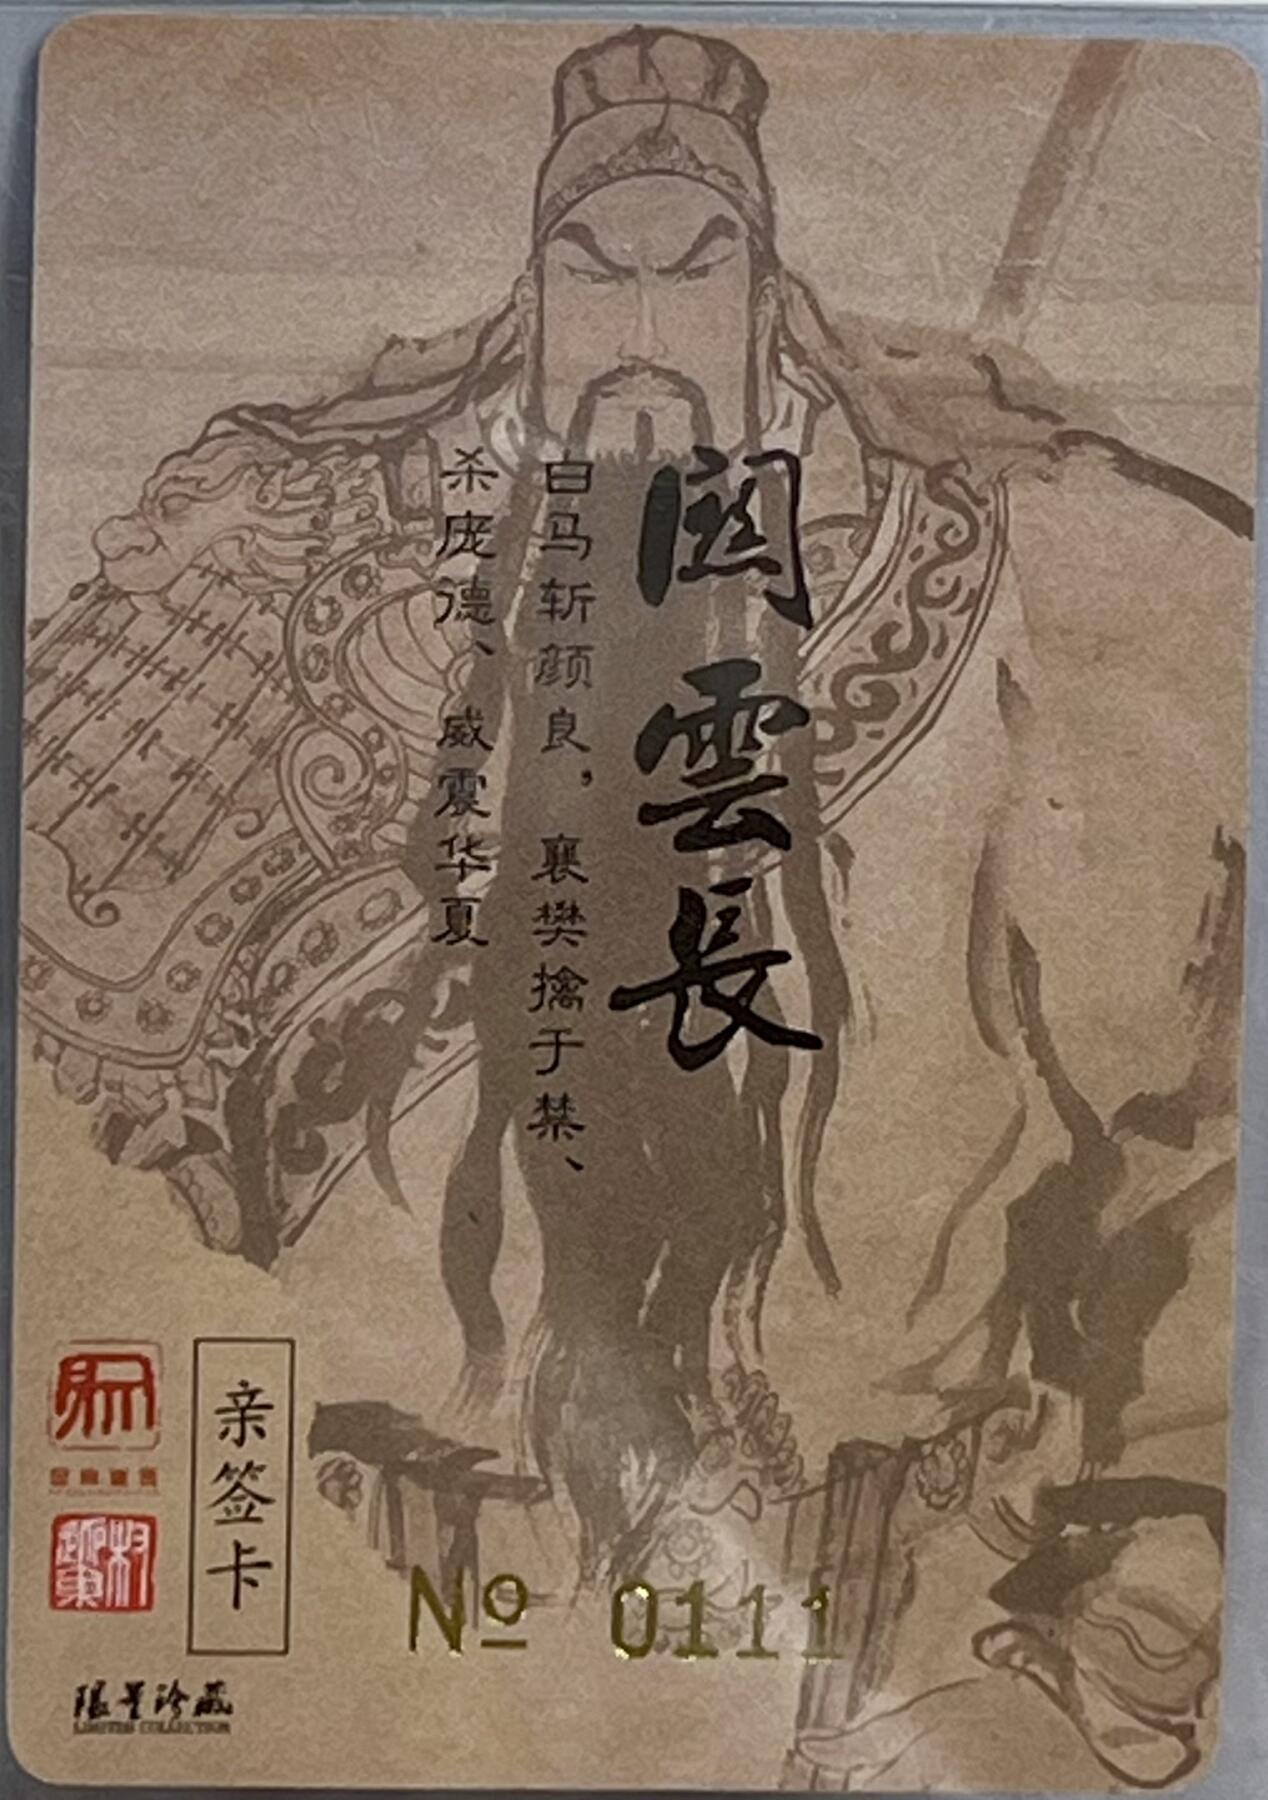 関雲長
白马斩颜良，襄樊擒于禁、
杀庞德、威震华夏
亲签卡
№ 0111
限量珍藏
LIMITED COLLECTION